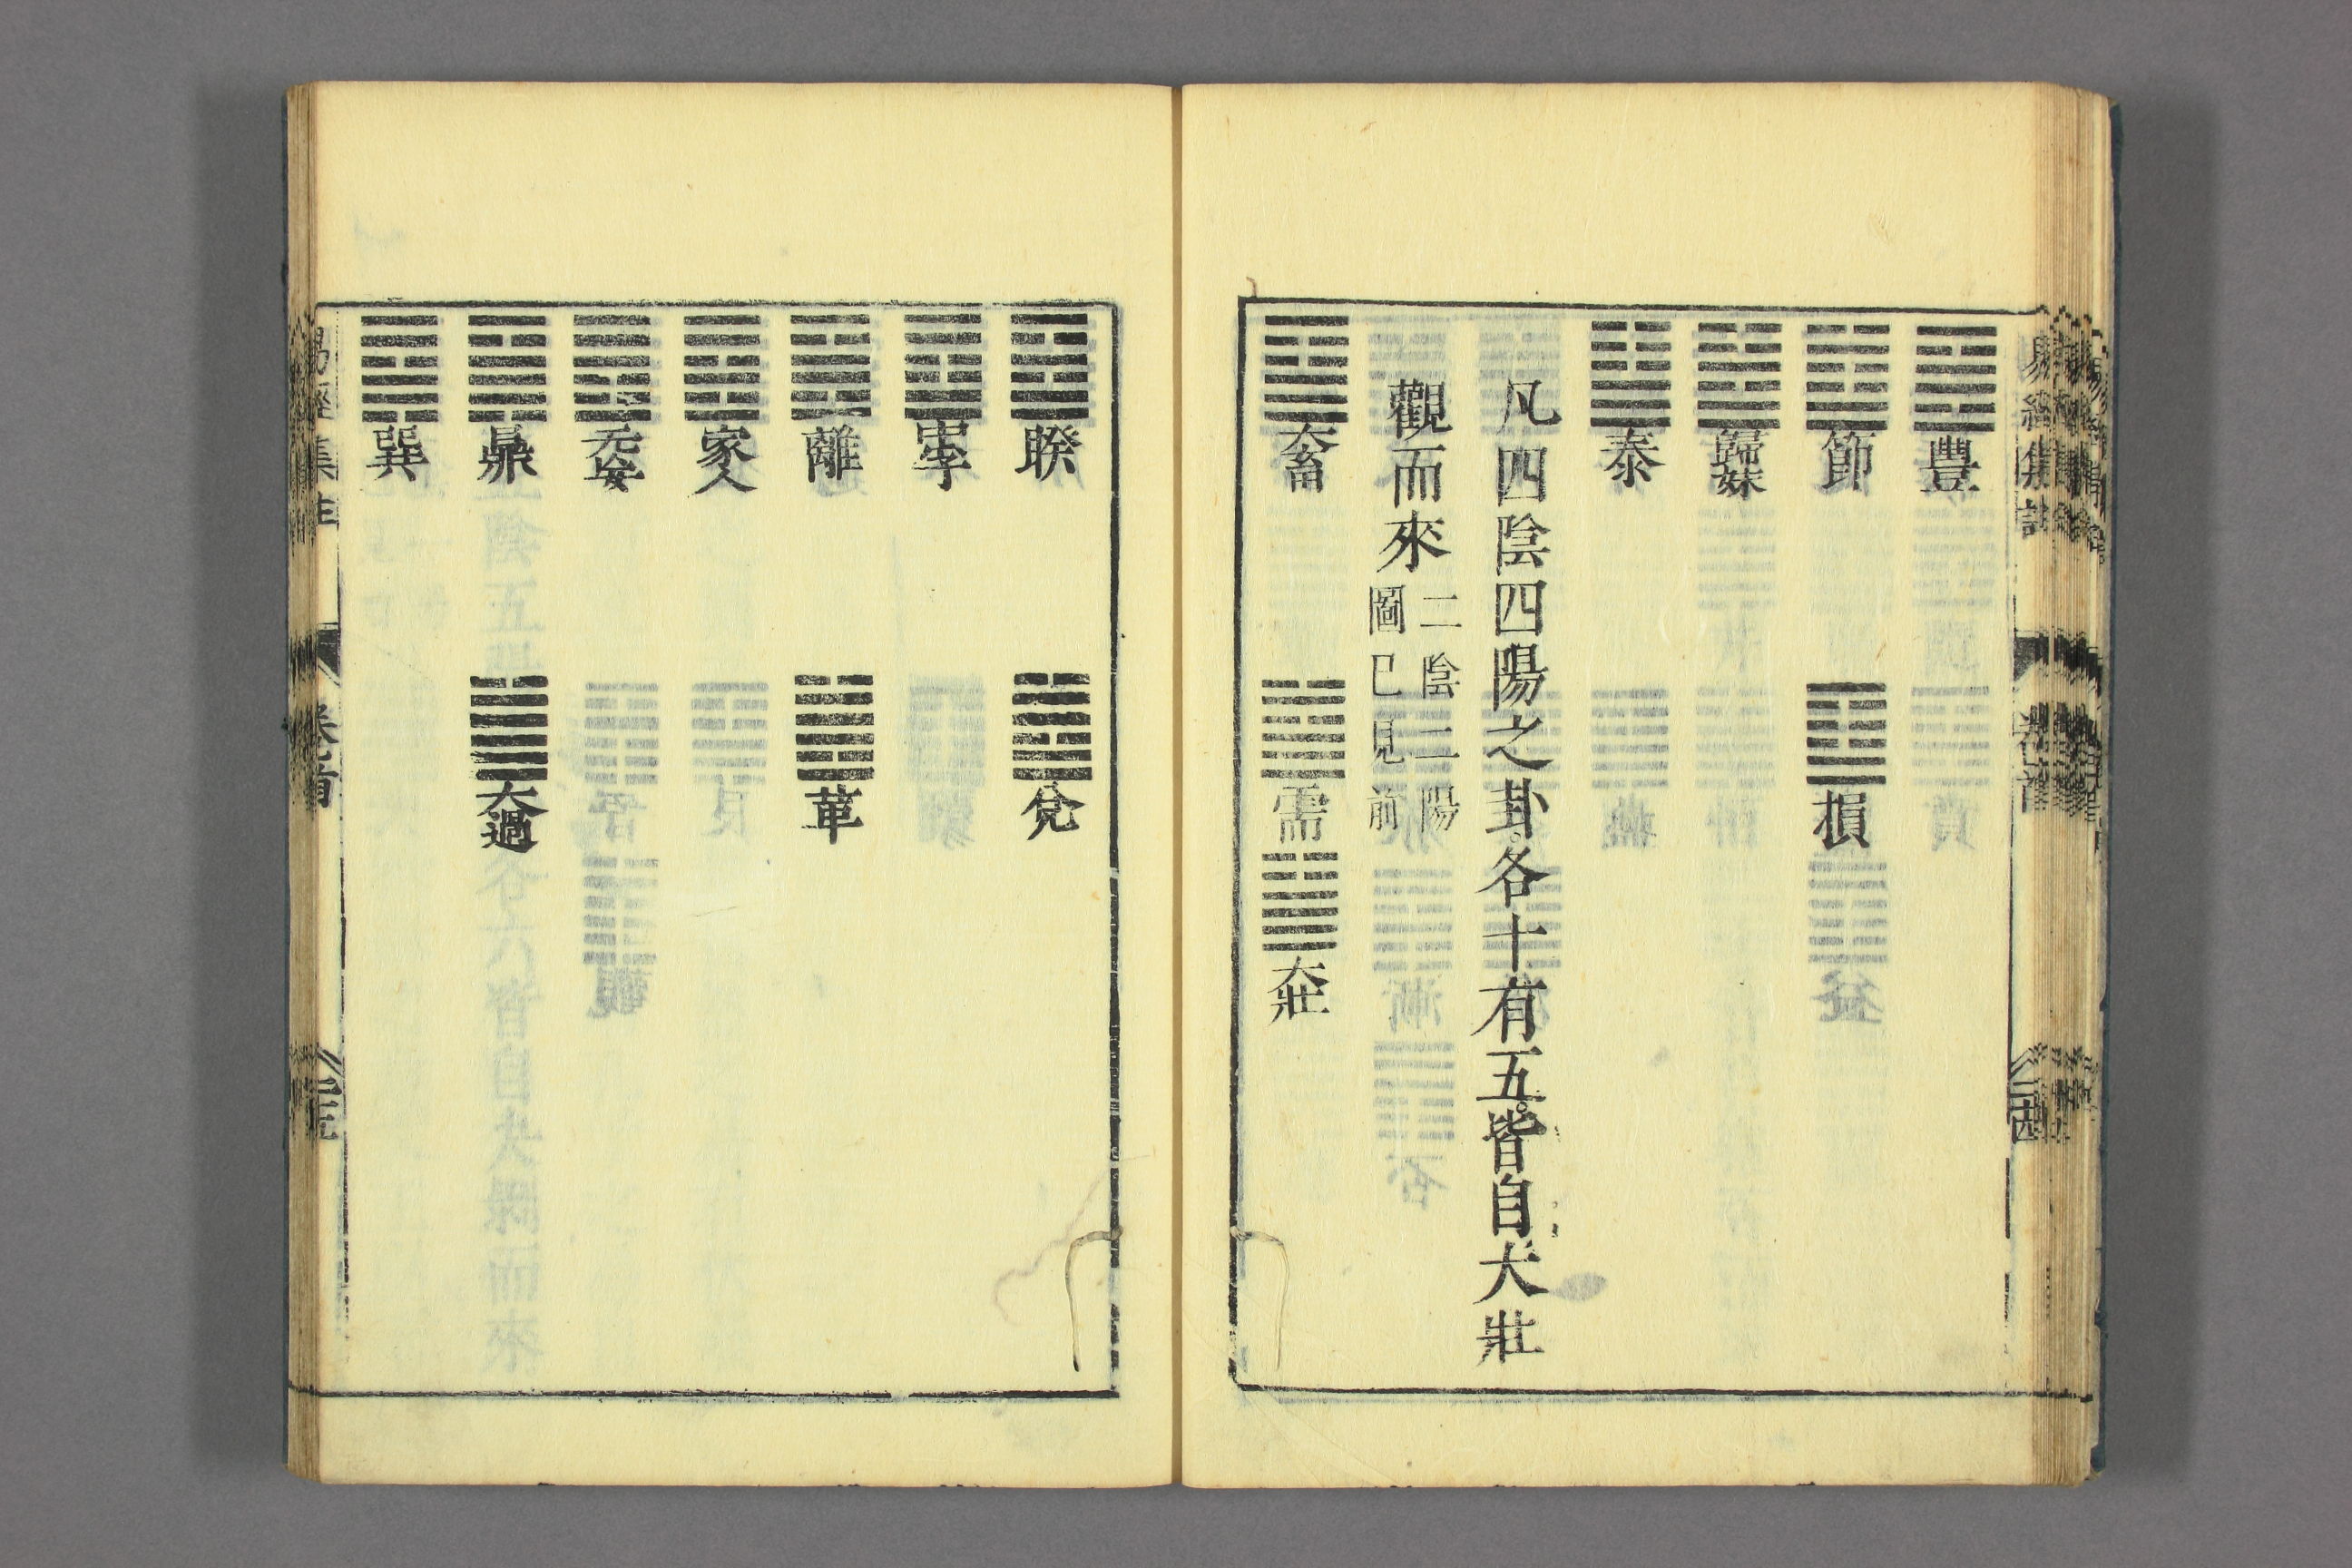 易經集註 卷首 二十四
豐
節 損
歸妹
泰
凡四陰四陽之卦。各十有五。皆自大壯
觀而來 二陰二陽
圖已見前
大畜 需 大壯
睽 兌
中孚
離 革
家人
无妄
鼎 大過
巽
易經集註 卷首 二十五